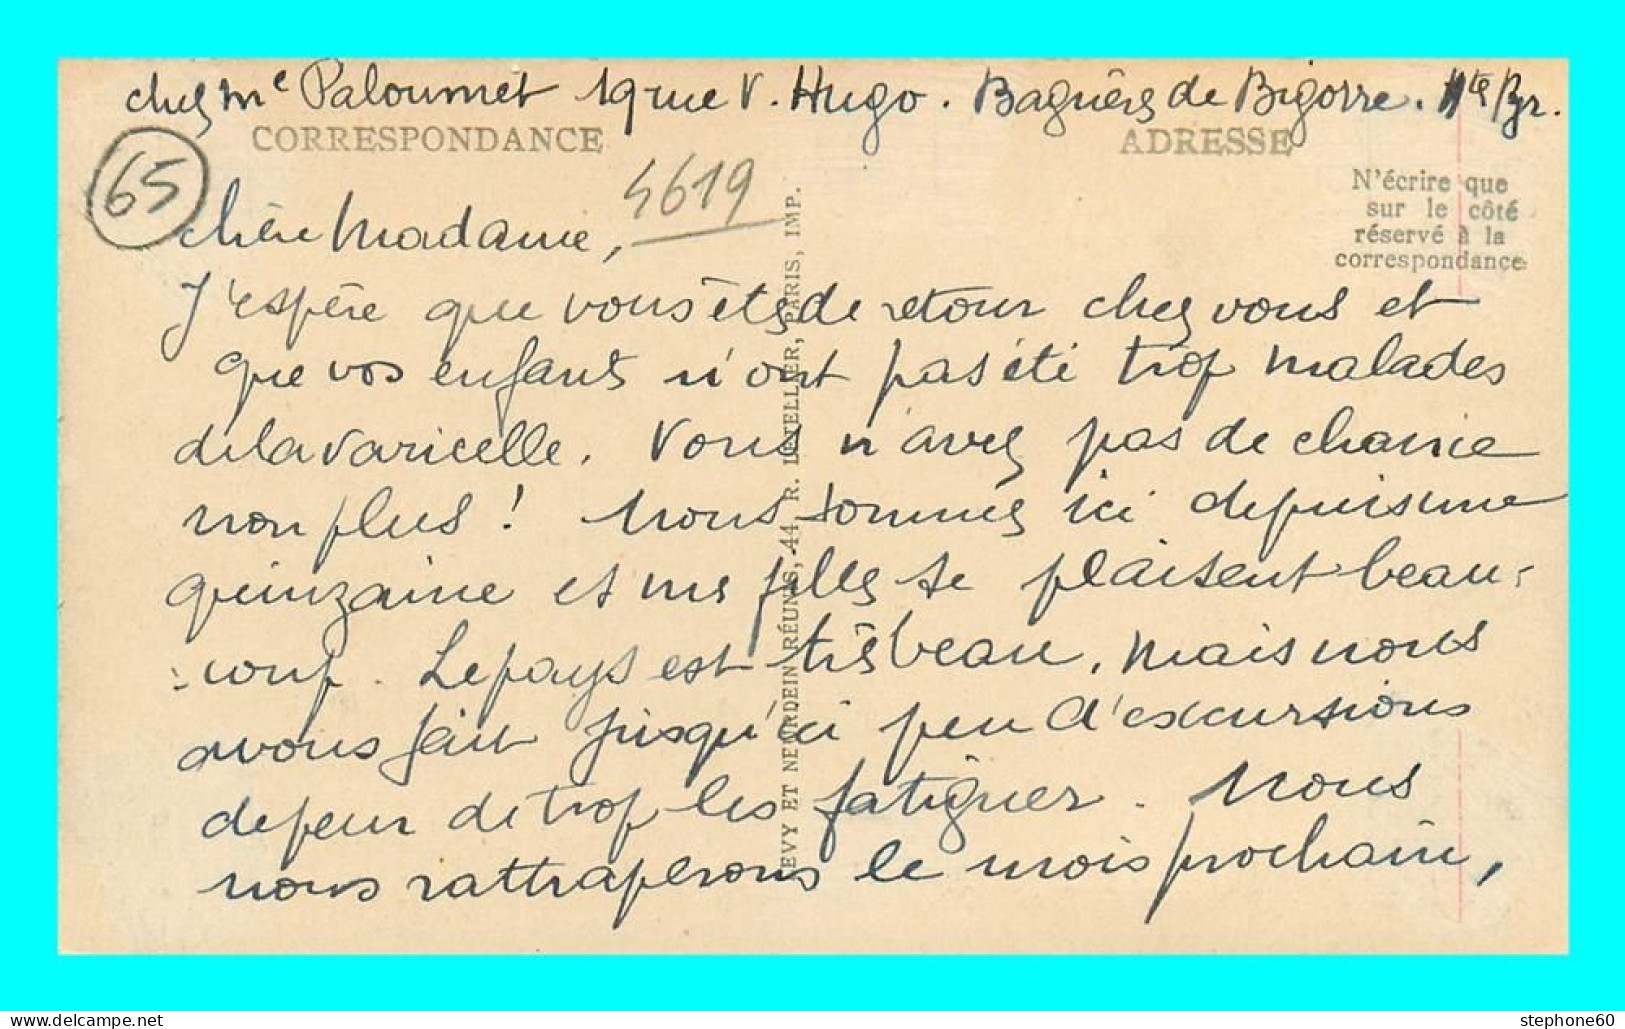 chez Me Paloumet 19 rue V. Hugo. Bagnères de Bigorre. Htes Pyr.
CORRESPONDANCE
ADRESSE
65
4619
N'écrire que
sur le côté
réservé à la
correspondance
Chère Madame,
J'espère que vous êtes de retour chez vous et
que vos enfants n'ont pas été trop malades
de la varicelle. Vous n'avez pas de chance
non plus ! Nous sommes ici depuis une
quinzaine et mes filles se plaisent beau-
coup. Le pays est très beau, mais nous
avons fait jusqu'ici peu d'excursions
de peur de trop les fatiguer. Nous
nous rattraperons le mois prochain,
LEVY ET NEURDEIN RÉUNIS, 44, R. LETELLIER, PARIS, IMP.
www.delcampe.net
stephone60